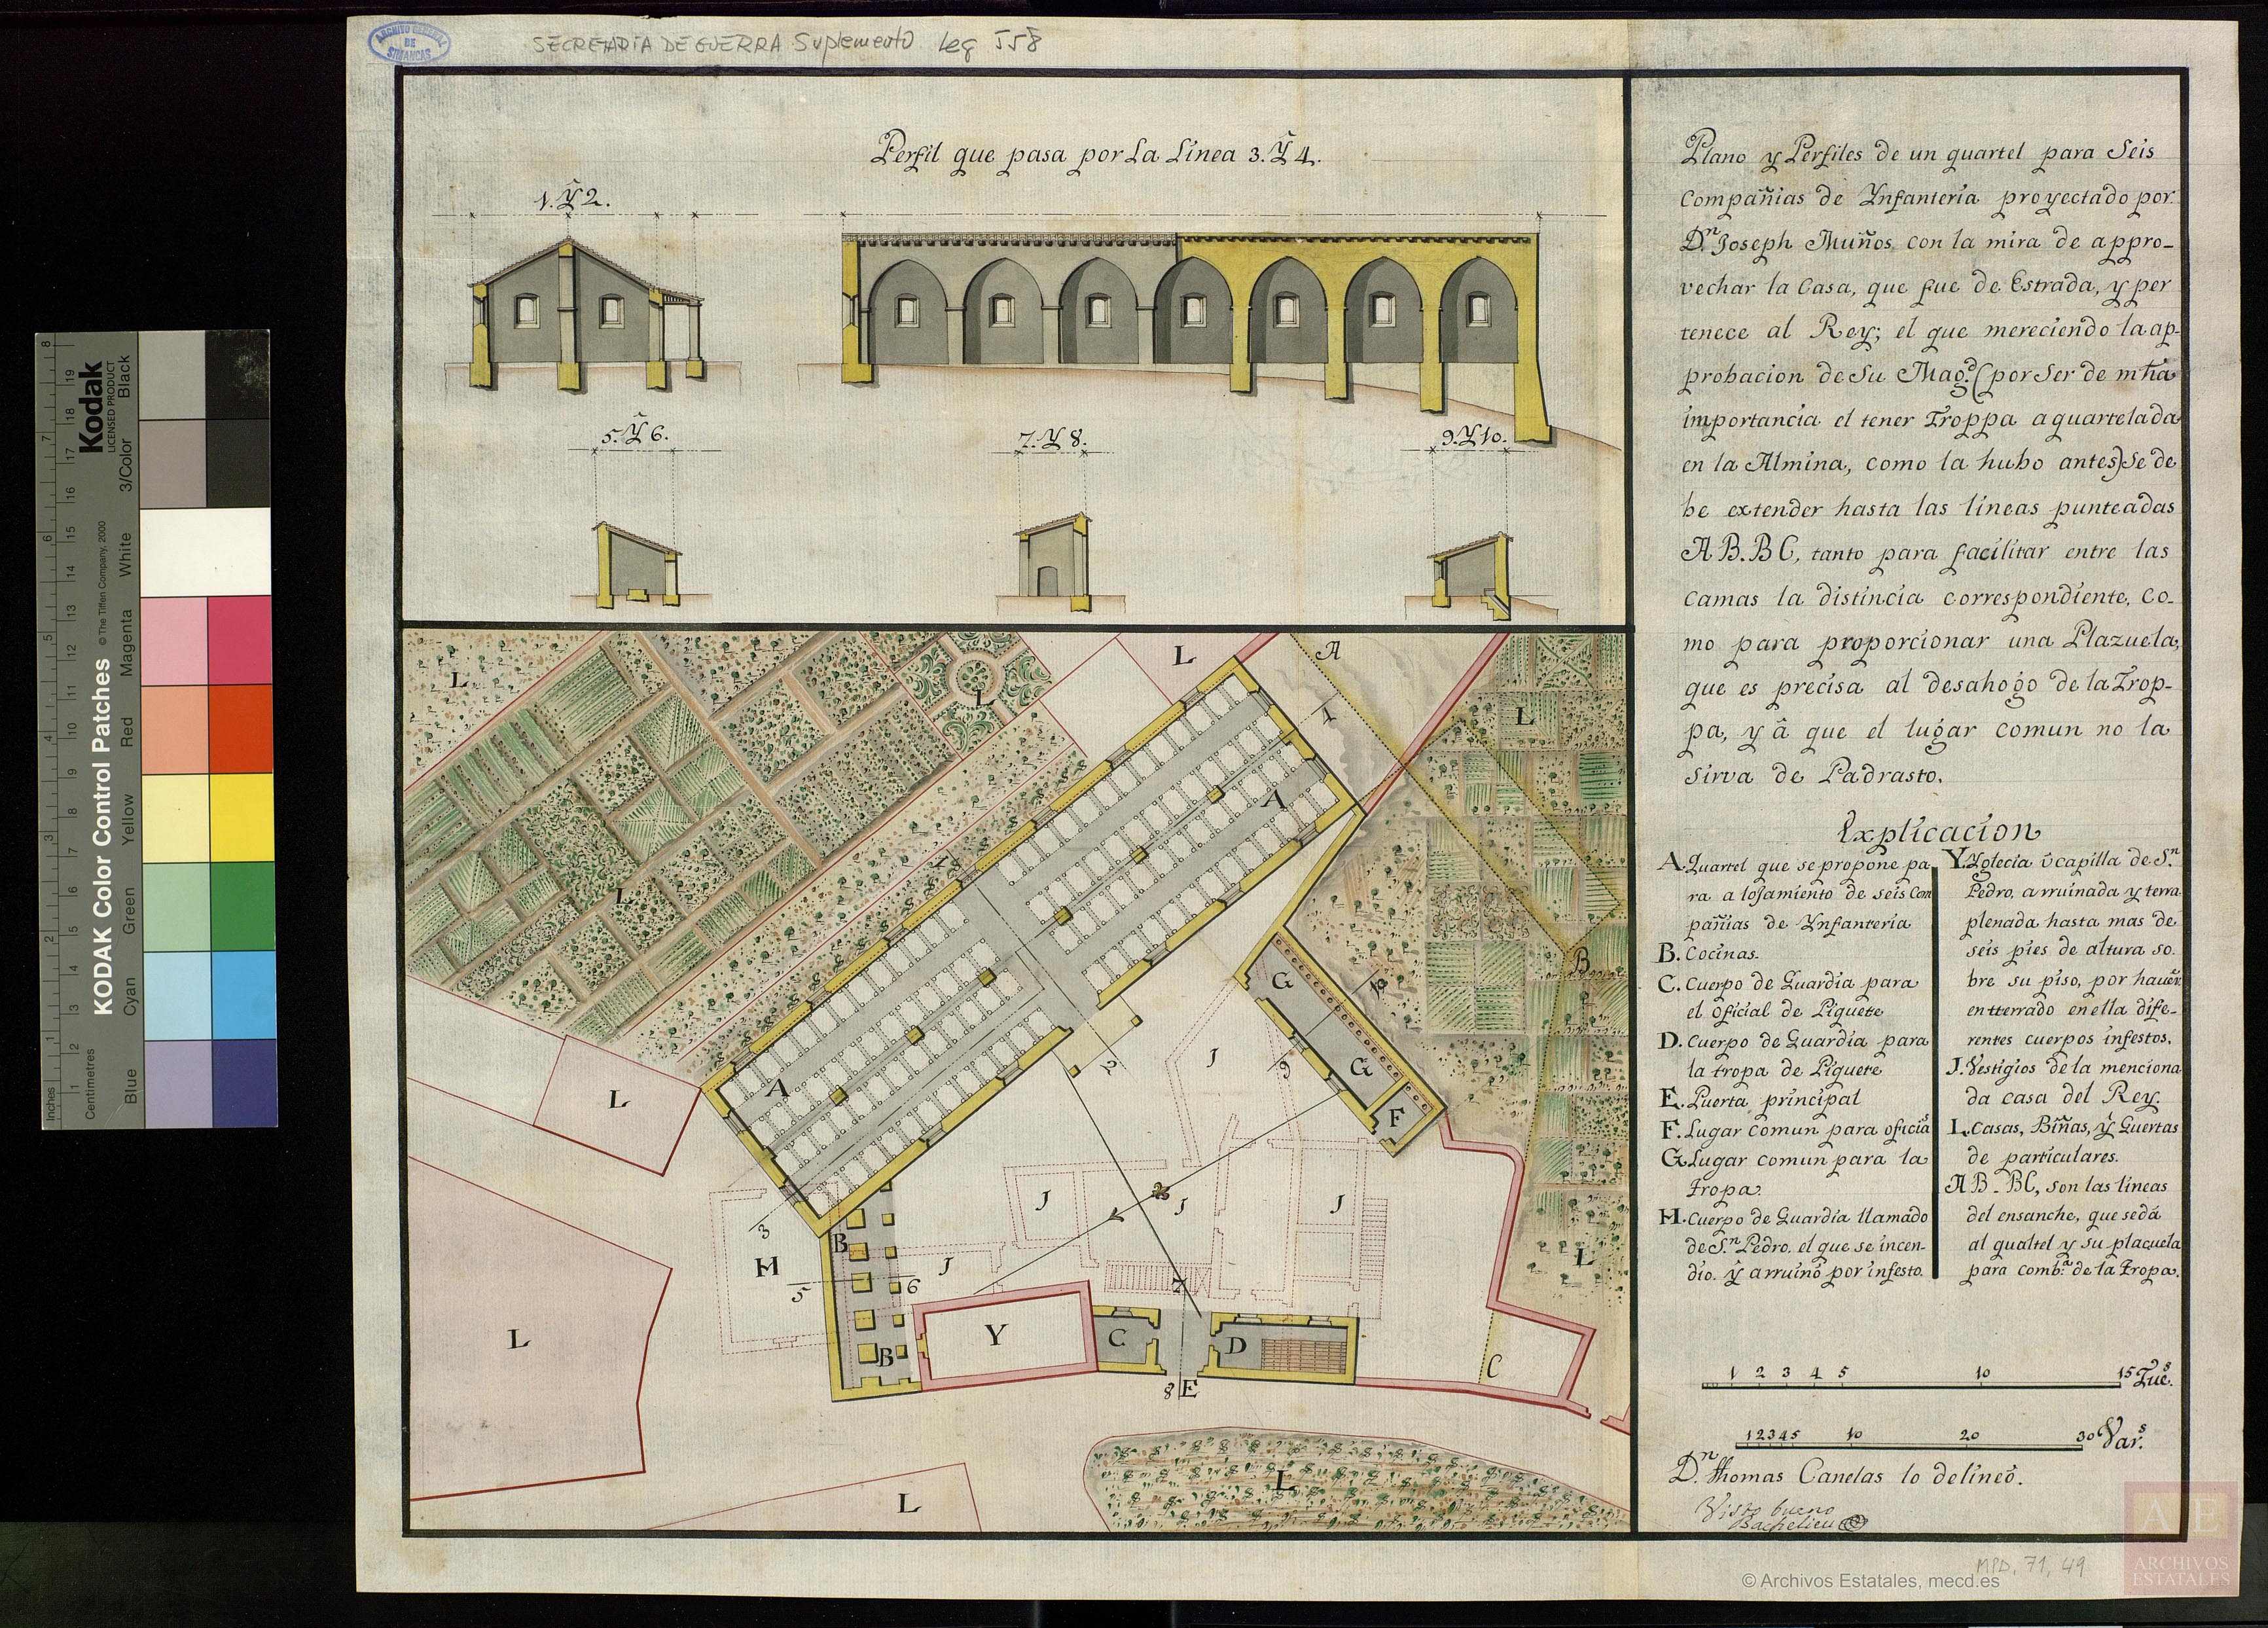 ARCHIVO GENERAL
DE
SIMANCAS
SECRETARÍA DE GUERRA Suplemento Leg 558
Perfil que pasa por La Línea 3. Ŷ 4.
1. Ŷ 2.
5. Ŷ 6.
7. Y 8.
9. Y 10.
Plano y Perfiles de un quartel para Seis
Compañias de Ynfantería proyectado por
Dn. Joseph Muños con la mira de appro-
vechar la Casa, que fue de Estrada, y per
tenece al Rey; el que mereciendo la ap-
probacion de Su Magd. (por Ser de mħa
importancia el tener Troppa aquartelada
en la Almina, como la hubo antes) Se de
be extender hasta las líneas punteadas
A B. B C, tanto para facilitar entre las
camas la distincia correspondiente, co-
mo para proporcionar una Plazuela,
que es precisa al desahogo de la Trop-
pa, y â que el lugar comun no la
sirva de Padrasto.
Explicacion
A. Quartel que se propone pa-
ra alojamiento de seis Com
pañias de Ynfantería
B. Cocinas.
C. Cuerpo de Guardia para
el oficial de Piquete
D. Cuerpo de Guardia para
la tropa de Piquete
E. Puerta principal
F. Lugar comun para oficia.s
G. Lugar comun para la
Tropa.
H. Cuerpo de Guardia llamado
de Sn. Pedro, el que se incen-
dio. ŷ arruinô por infesto.
Y. Yglecia û capilla de Sn.
Pedro, arruinada y terra
plenada hasta mas de
seis pies de altura so.
bre su piso, por haver
entterrado en ella dife-
rentes cuerpos infestos.
J. Vestigios de la menciona
da casa del Rey.
L. Casas, Biñas, ŷ Guertas
de particulares.
A B - B C, son las líneas
del ensanche, que se dá
al qualtel y su placuela
para comb.a de la Tropa.
1 2 3 4 5 10 15 Tue.s
1 2 3 4 5 10 20 30 Var.s
Dn. Thomas Canelas lo delineô.
Visto bueno
Bachelieu
MPD, 71, 49
© Archivos Estatales, mecd.es
AE
ARCHIVOS
ESTATALES
L
L
L
L
L
L
L
L
L
L
L
A
A
A
B
B
B
C
C
D
E
F
G
G
H
Y
J
J
J
J
J
1
1
2
3
5
6
7
8
9
10
Kodak
LICENSED PRODUCT
KODAK Color Control Patches
© The Tiffen Company, 2000
Blue Cyan Green Yellow Red Magenta White 3/Color Black
Inches 1 2 3 4 5 6 7 8
Centimetres 1 2 3 4 5 6 7 8 9 10 11 12 13 14 15 16 17 18 19